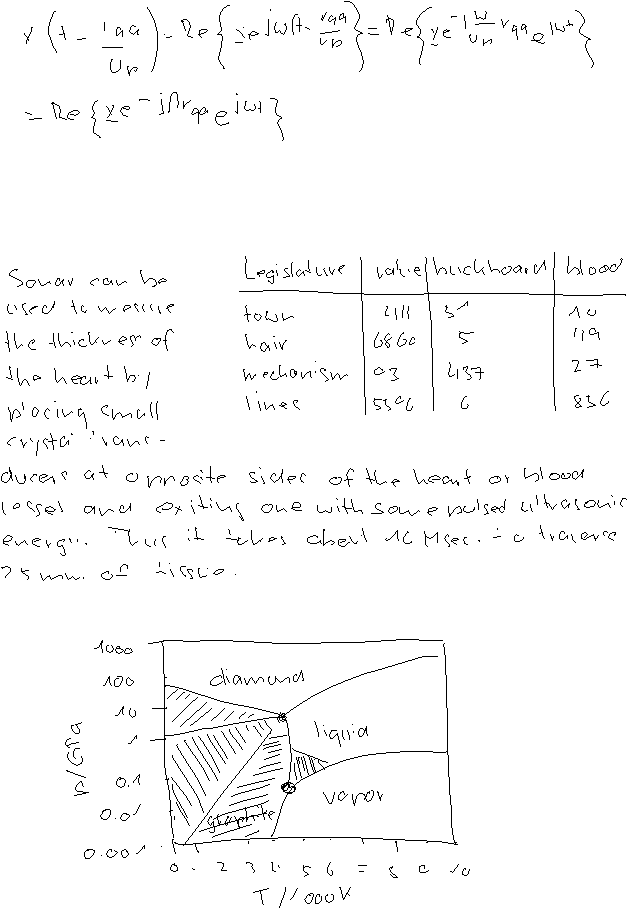 x(t - r_qa/v_p) = Re{x e^jω(t - r_qa/v_p)} = Re{x e^-j ω/v_p r_qa e^jωt}
= Re{x e^-jβr_qa e^jωt}
Sonar can be
used to measure
the thickness of
the heart by
placing small
crystal trans-
ducers at opposite sides of the heart or blood
vessel and exiting one with some pulsed ultrasonic
energy. Thus it takes about 16 Msec. to traverse
25 mm. of tissue.
Legislature value buckboard blood
town 411 31 10
hair 6860 5 119
mechanism 93 437 27
lines 5396 6 836
1000
100 diamond
10
1 liquid
p/GPa
0.1 vapor
0.01 graphite
0.001
0 1 2 3 4 5 6 7 8 9 10
T/1000K